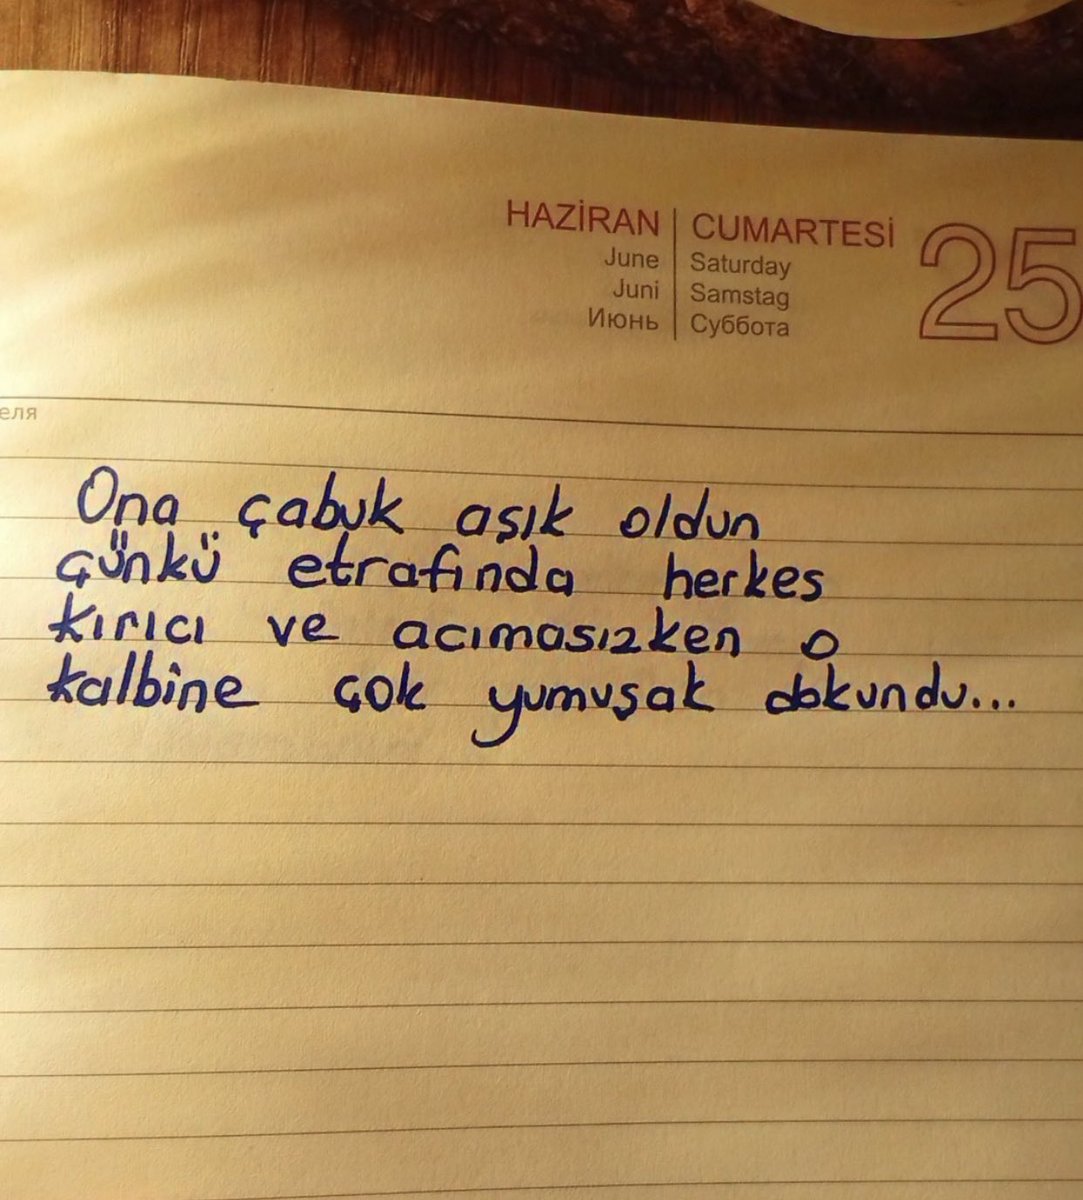 HAZİRAN CUMARTESİ 25
June Saturday
Juni Samstag
Июнь Суббота
еля
Ona çabuk aşık oldun
çünkü etrafında herkes
kırıcı ve acımasızken o
kalbine çok yumuşak dokundu...